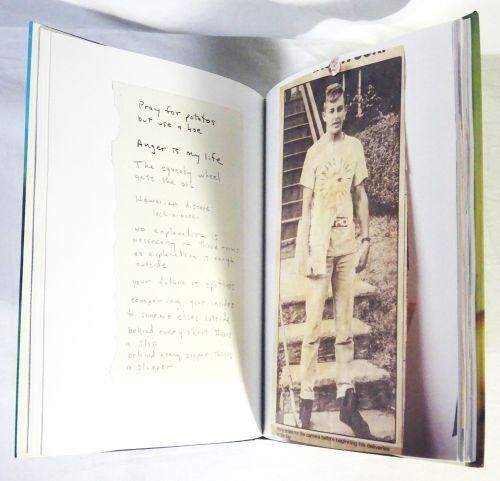 Pray for potatos
but use a hoe
Anger is my life
The squeaky wheel
gets the oil
Hawaiian disease
lack-a-nooki
no explanation is
nessecery in those rooms
no explanation is enough
outside
your future is spotless
comparing your insides
to someone elses outside
behind every skirt theres
a slip
behind every zipper theres
a slipper
for the camera before beginning his deliveries